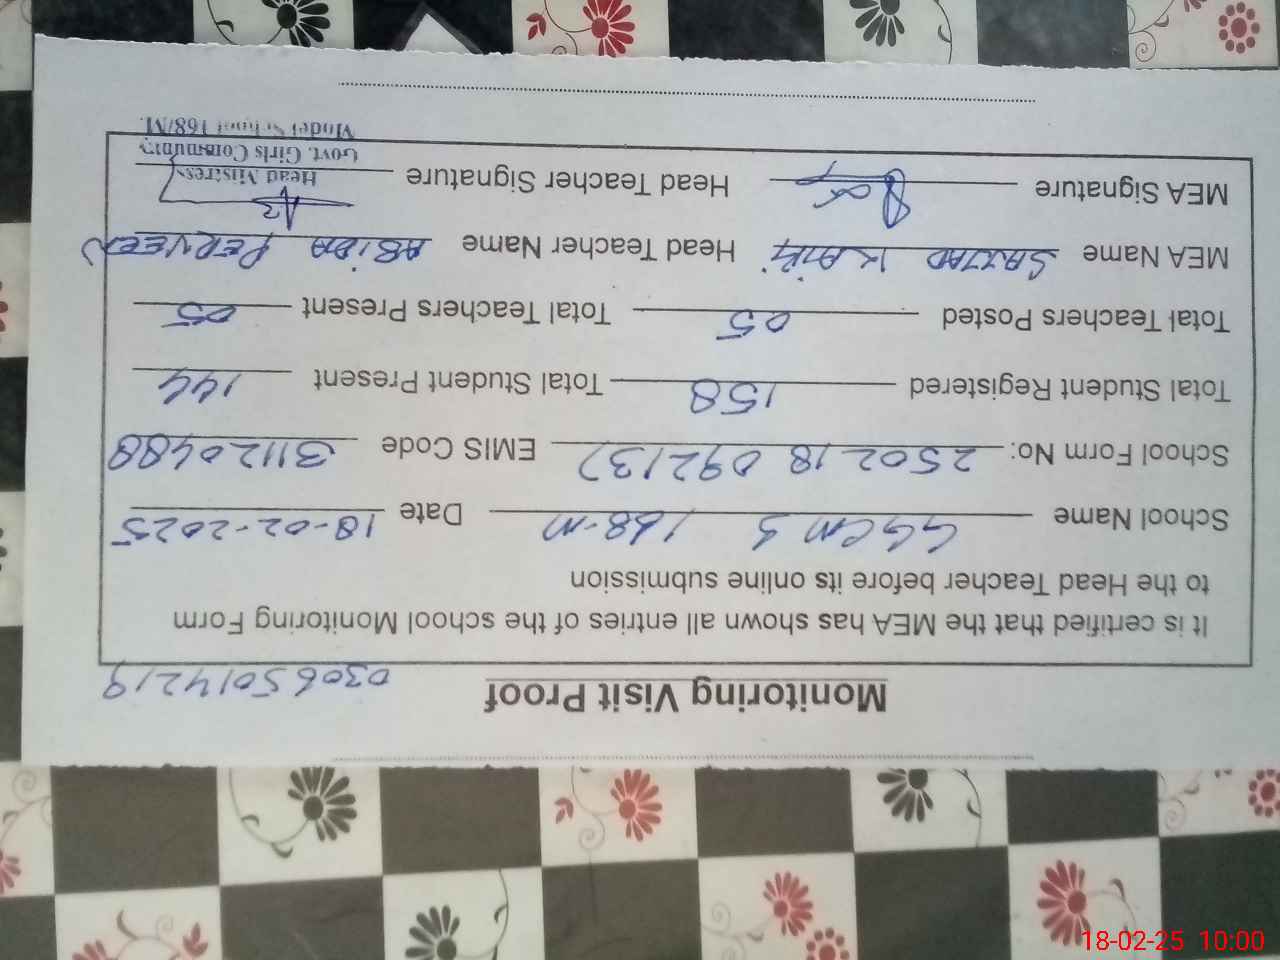 Monitoring Visit Proof 03065014219
It is certified that the MEA has shown all entries of the school Monitoring Form
to the Head Teacher before its online submission
School Name GGCMS 168-M Date 18-02-2025
School Form No: 250218092137 EMIS Code 31120488
Total Student Registered 158 Total Student Present 144
Total Teachers Posted 05 Total Teachers Present 05
MEA Name SAJJAD Head Teacher Name ABIDA PERVEEN
MEA Signature Head Teacher Signature
Head Mistress
Govt. Girls Community
Model School 168/M.
18-02-25 10:00